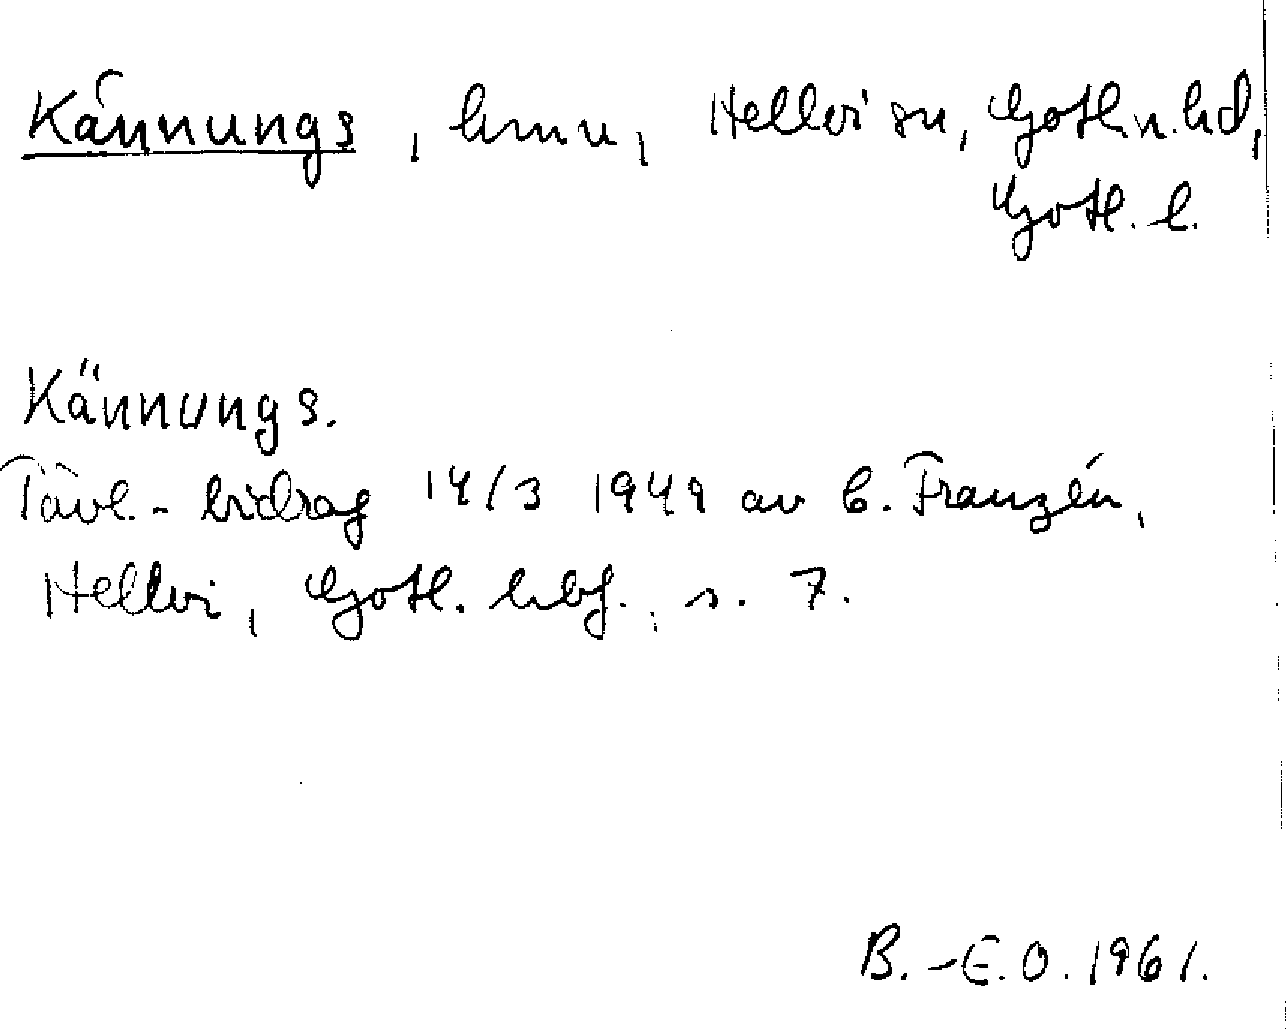 Kännungs, hmn, Hellvi sn, Gotl. n. hd,
Gotl. l.
Kännungs.
Tävl.-bidrag 14/3 1949 av B. Franzén,
Hellvi, Gotl. hbf., s. 7.
B.-E.O. 1961.